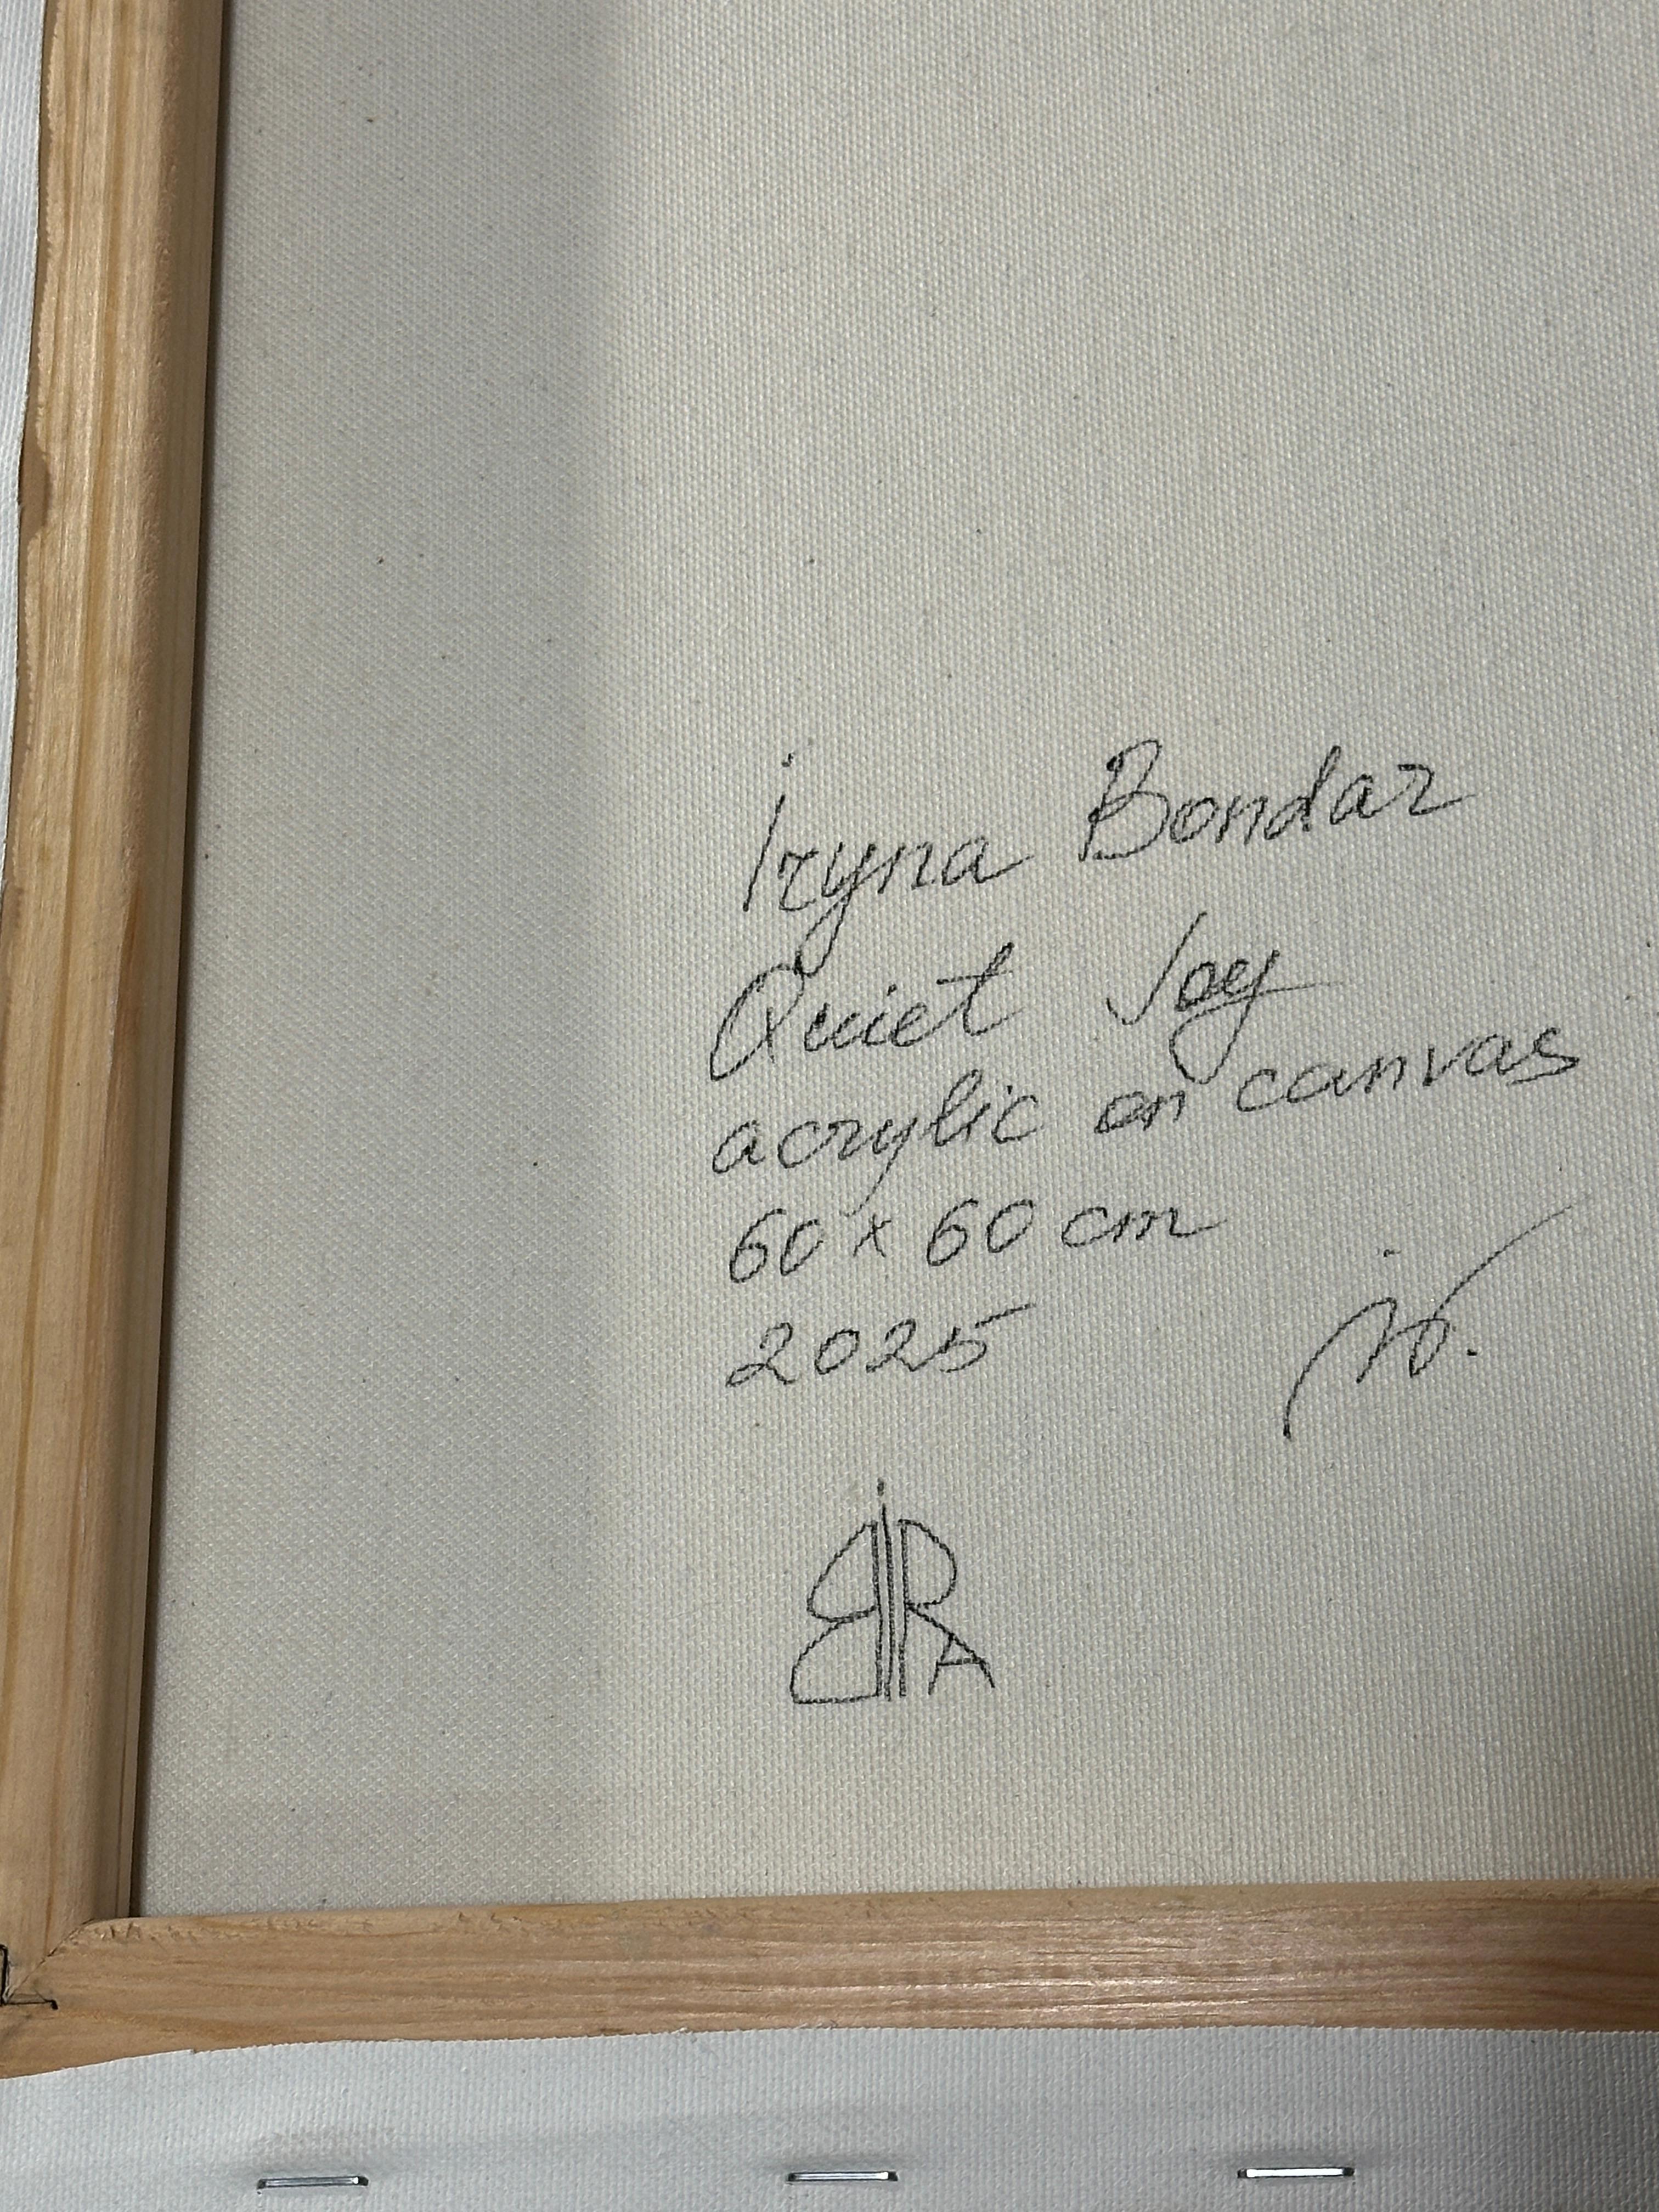 Iryna Bondar
Quiet Joy
acrylic on canvas
60 x 60 cm
2025